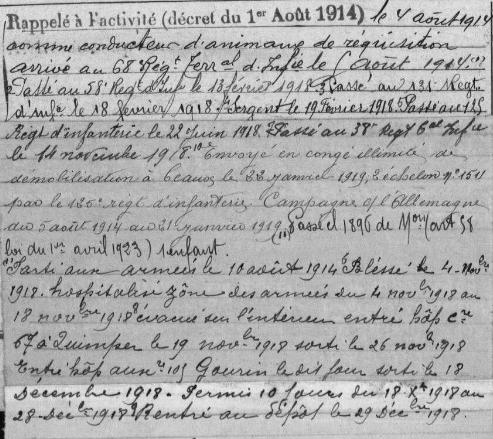 Rappelé à l'activité (décret du 1er Août 1914) le 4 août 1914
comme conducteur d'animaux de réquisition
arrivé au 68e Régt Terral d'Infie le août 1914
Passé au 58e Régt d'Infie le 13 février 1918 Passé au 131e Régt
d'infie le 18 février 1918 Sergent le 19 Février 1918 Passé au 125
Régt d'infanterie le 22 Juin 1918 Passé au 38e Régt Infie
le 14 novembre 1918. Envoyé en congé illimité de
démobilisation à le 22 janvier 1919, 2 échelon no 1511
par le 125e régt d'infanterie. Campagne c/ l'Allemagne
du 5 août 1914 au 21 janvier 1919. Passe cl 1896 de Mon art 58
loi du 1er avril 1923) 1 enfant.
Parti aux armées le 10 août 1914 Blessé le 4 Nov
1918. hospitalisé zône des armées du 4 novbre 1918 au
18 novbre 1918 évacué sur l'intérieur entré hôp cre
67 à Quimper le 19 novbre 1918 sorti le 26 novbre 1918
Entré hôp auxre 105 Gourin le dit jour sorti le 18
Décembre 1918. Permis 10 jours du 18 Xbre 1918 au
28 Décbre 1918 Rentré au dépôt le 29 Décbre 1918.